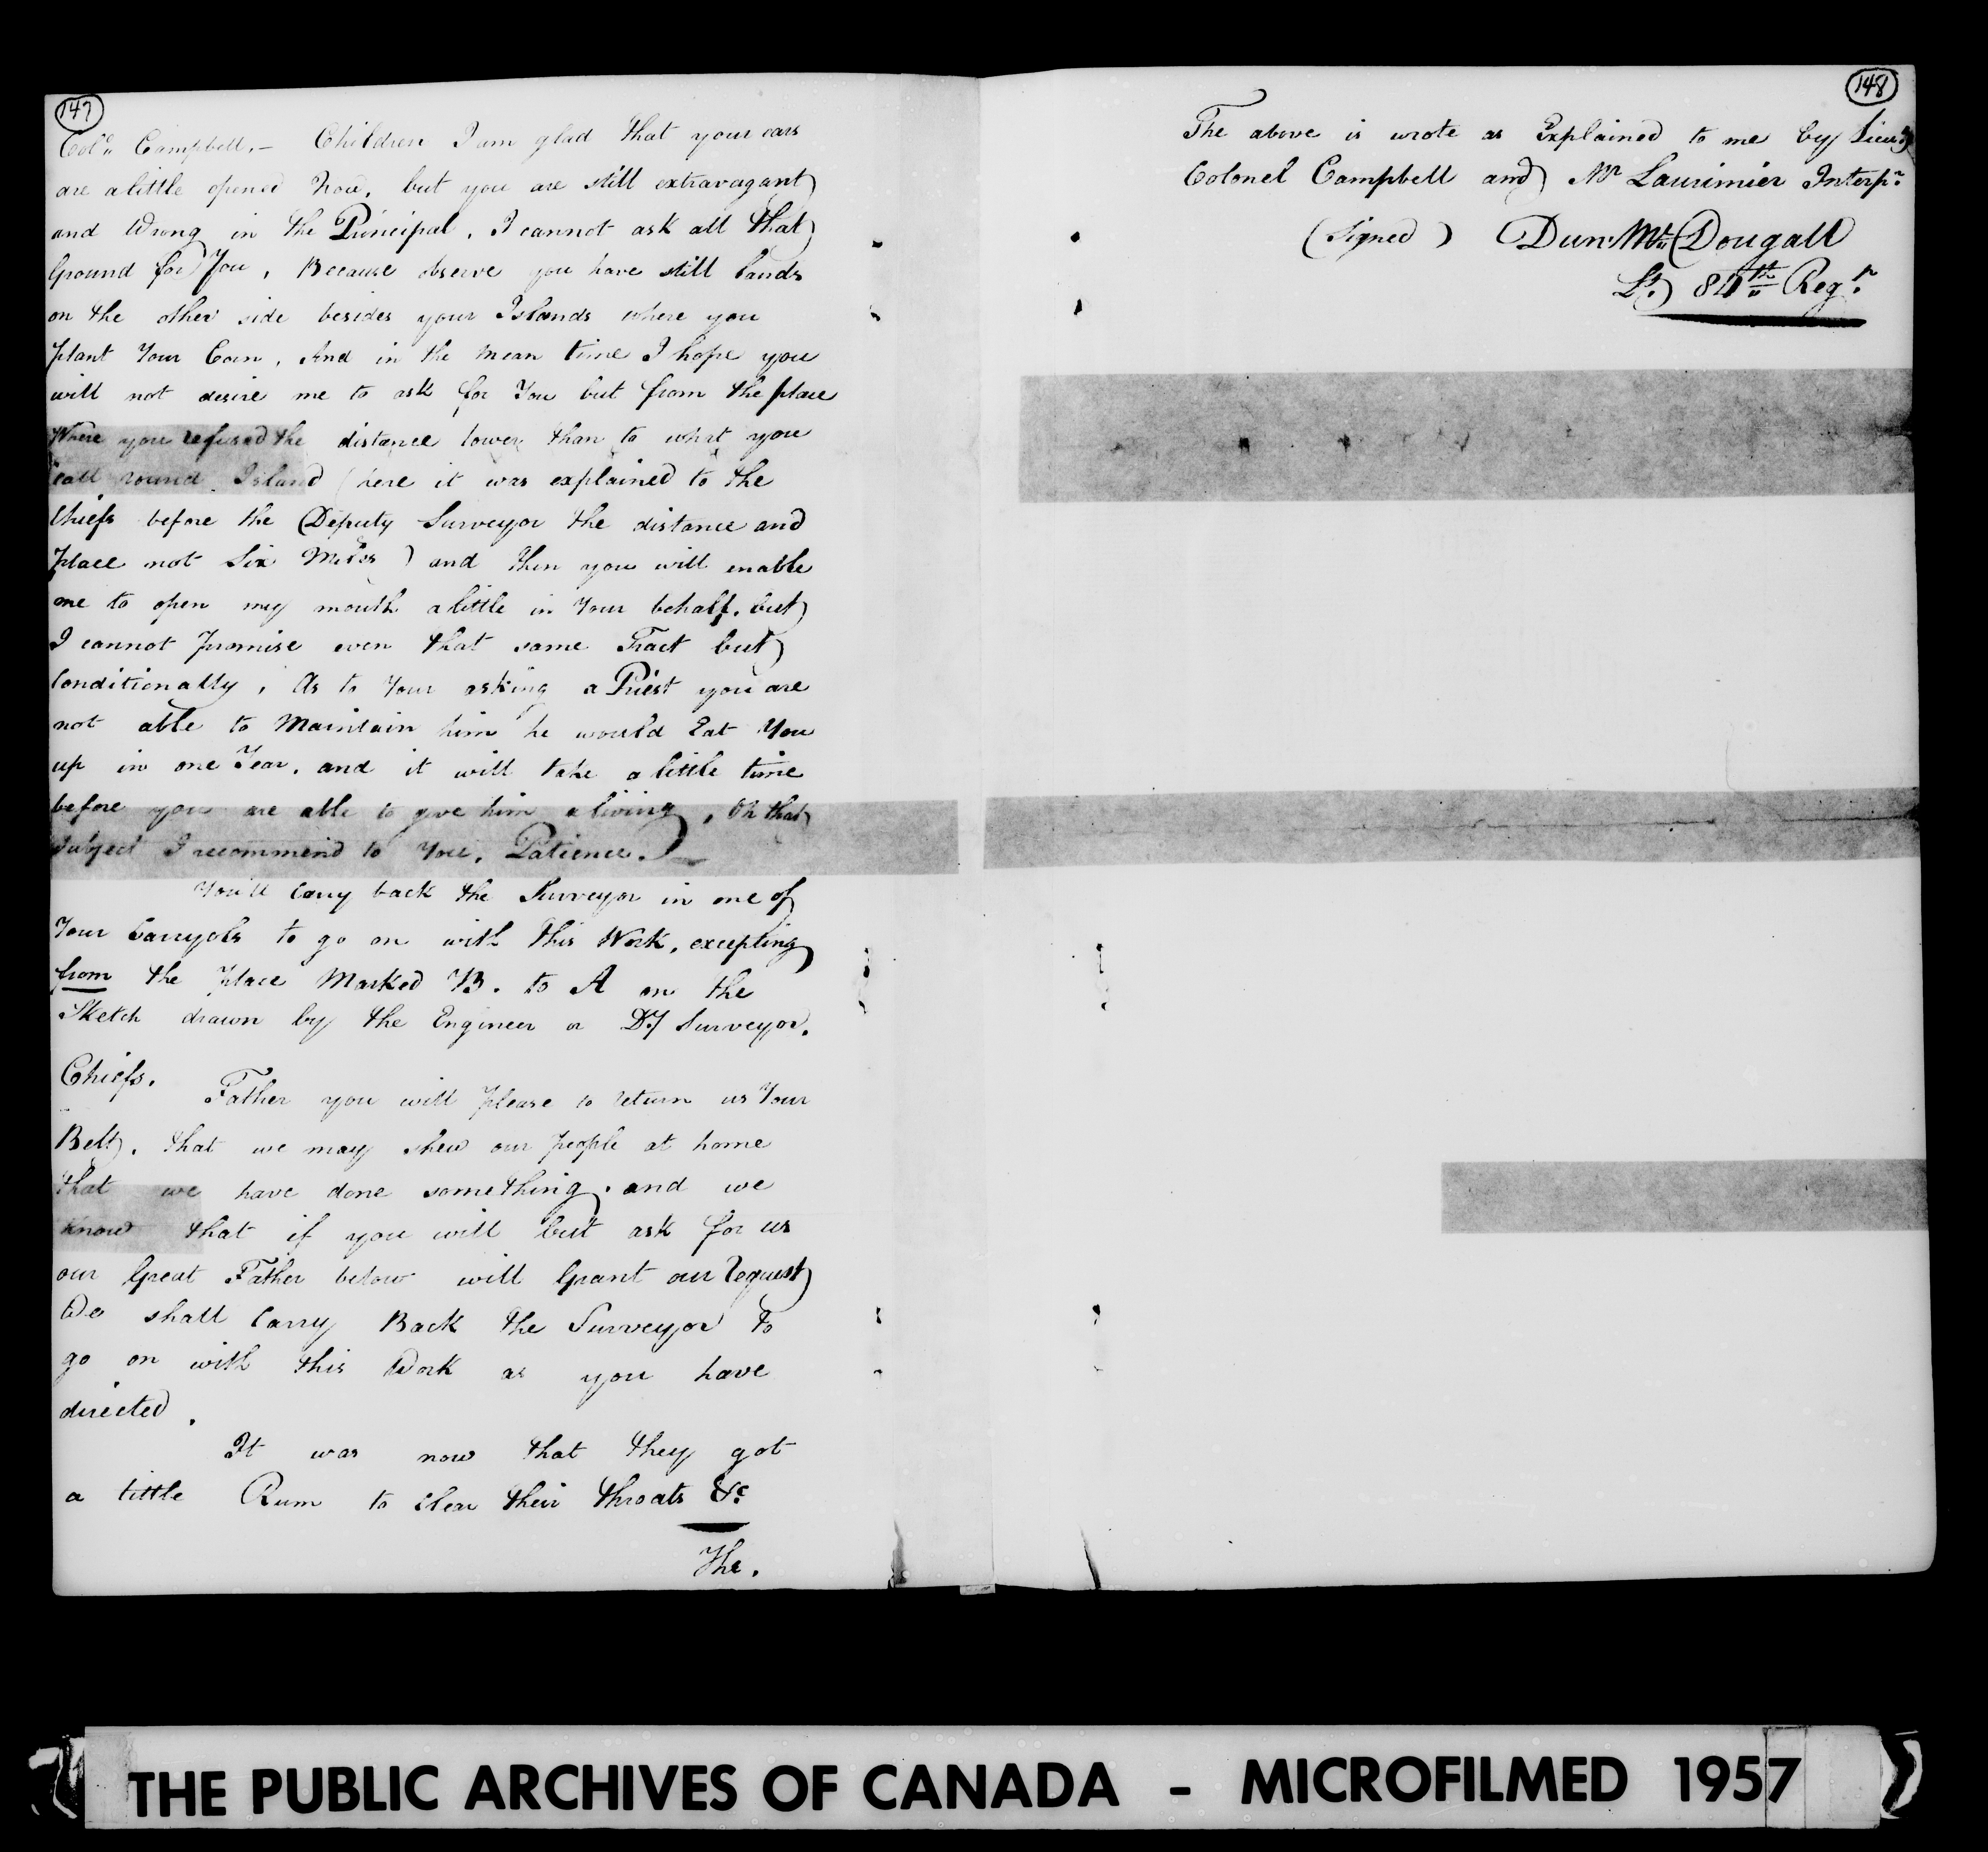 147
Col.º Campbell.– Children I am glad that your ears
are a little opened Now, but you are still extravagant
and Wrong in the Principal. I cannot ask all that
Ground for You, Because observe you have still Lands
on the other side besides your Islands where you
plant Your Corn, And in the mean time I hope you
will not desire me to ask for You but from the place
Where you refused the distance lower than to what you
call round Island (here it was explained to the
Chiefs before the Deputy Surveyor the distance and
place not Six Miles) and then you will enable
me to open my mouth a little in Your behalf. but
I cannot promise even that same Tract but
Conditionally, As to Your asking a Priest you are
not able to Maintain him he would Eat You
up in one Year, and it will take a little time
before you are able to give him a living, On that
subject I recommend to You, Patience.
You'll Carry back the Surveyor in one of
Your to go on with This Work, excepting
from the place Marked B. to A on the
Sketch drawn by the Engineer or Dy Surveyor.
Chiefs.
Father you will please to return us Your
Belt, that we may shew our people at home
that we have done something. and we
know that if you will but ask for us
our Great Father below will Grant our Request
We shall Carry Back the Surveyor to
go on with this Work as you have
directed.
It was now that they got
a little Rum to clear their throats &c
The.
148
The above is wrote as Explained to me by Lieu.t
Colonel Campbell and Mr Laurimier Interpr.
(Signed) Dun: Mc Dougall
Lt. 84th Regt.
THE PUBLIC ARCHIVES OF CANADA - MICROFILMED 1957